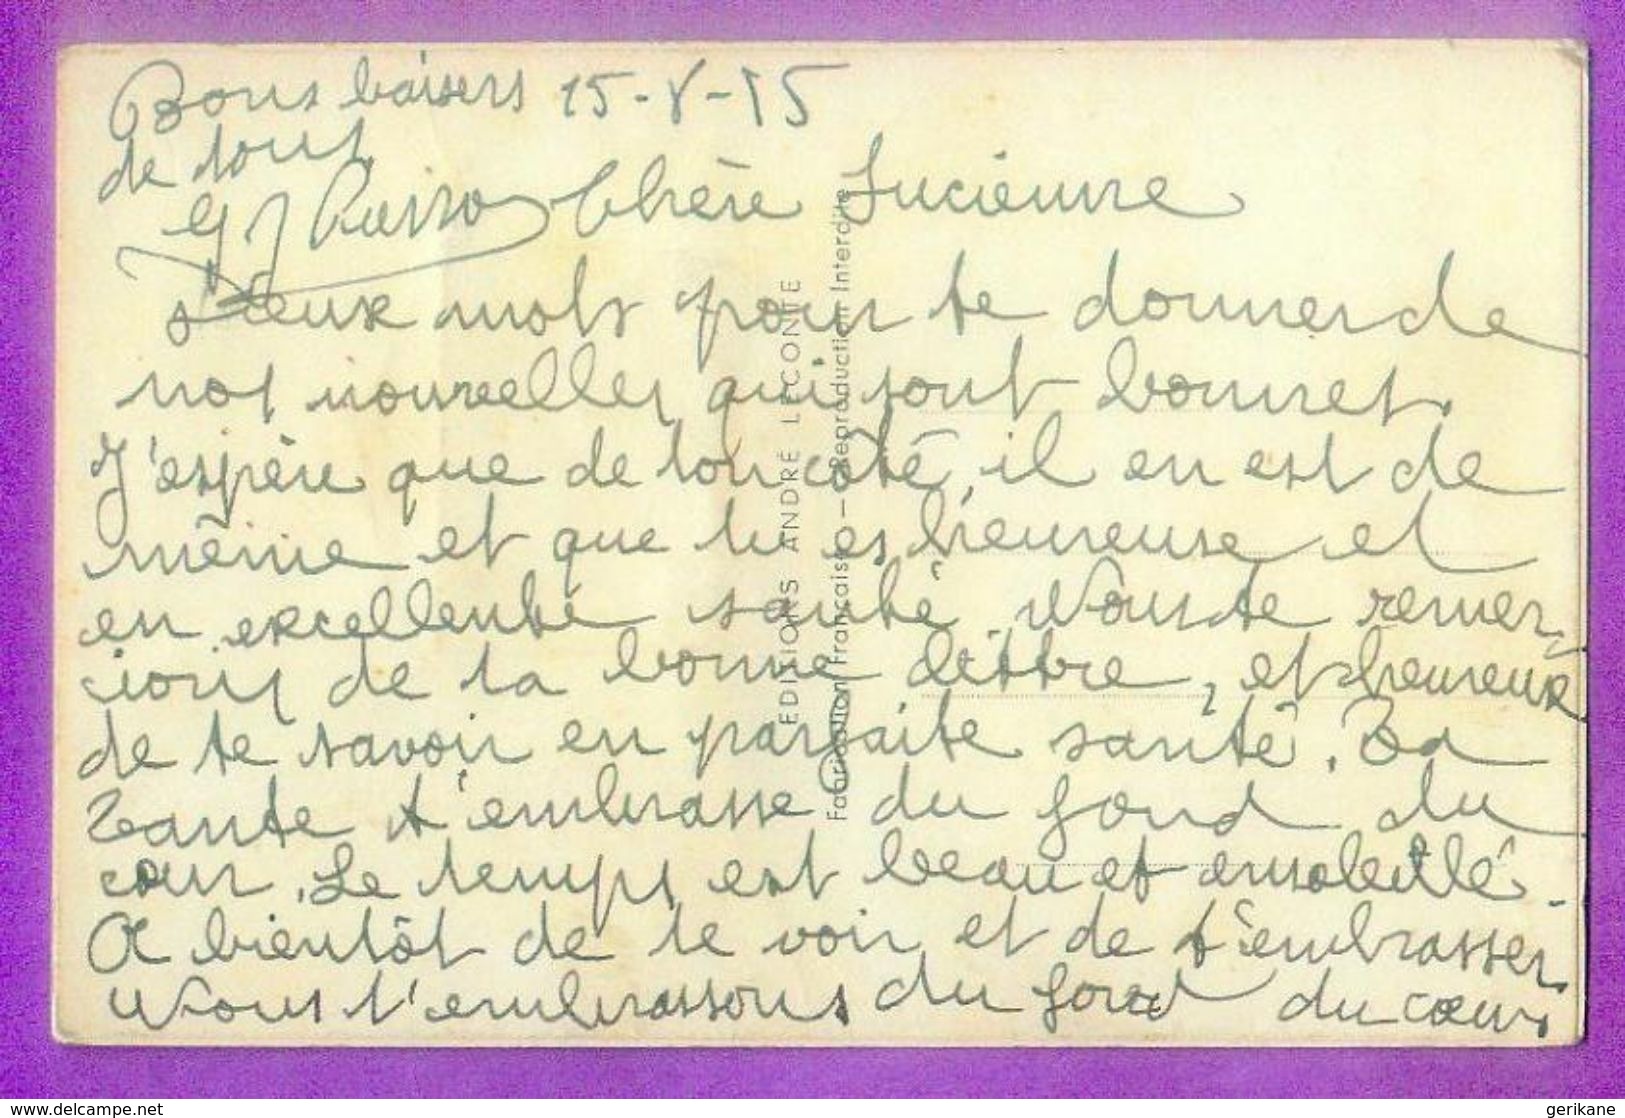 Bons baisers 15-8-75
de tous
Chère Lucienne
Deux mots pour te donner de
nos nouvelles qui sont bonnes.
J'espère que de ton côté, il en est de
même et que tu es heureuse et
en excellente santé. Nous te remer-
cions de ta bonne lettre, et heureux
de te savoir en parfaite santé. Ta
Tante t'embrasse du fond du
cœur. Le temps est beau et ensoleillé.
A bientôt de te voir et de t'embrasser
Nous t'embrassons du fond du cœur
EDITIONS ANDRÉ LECONTE
Fabrication Française — Reproduction Interdite
www.delcampe.net
gerikane